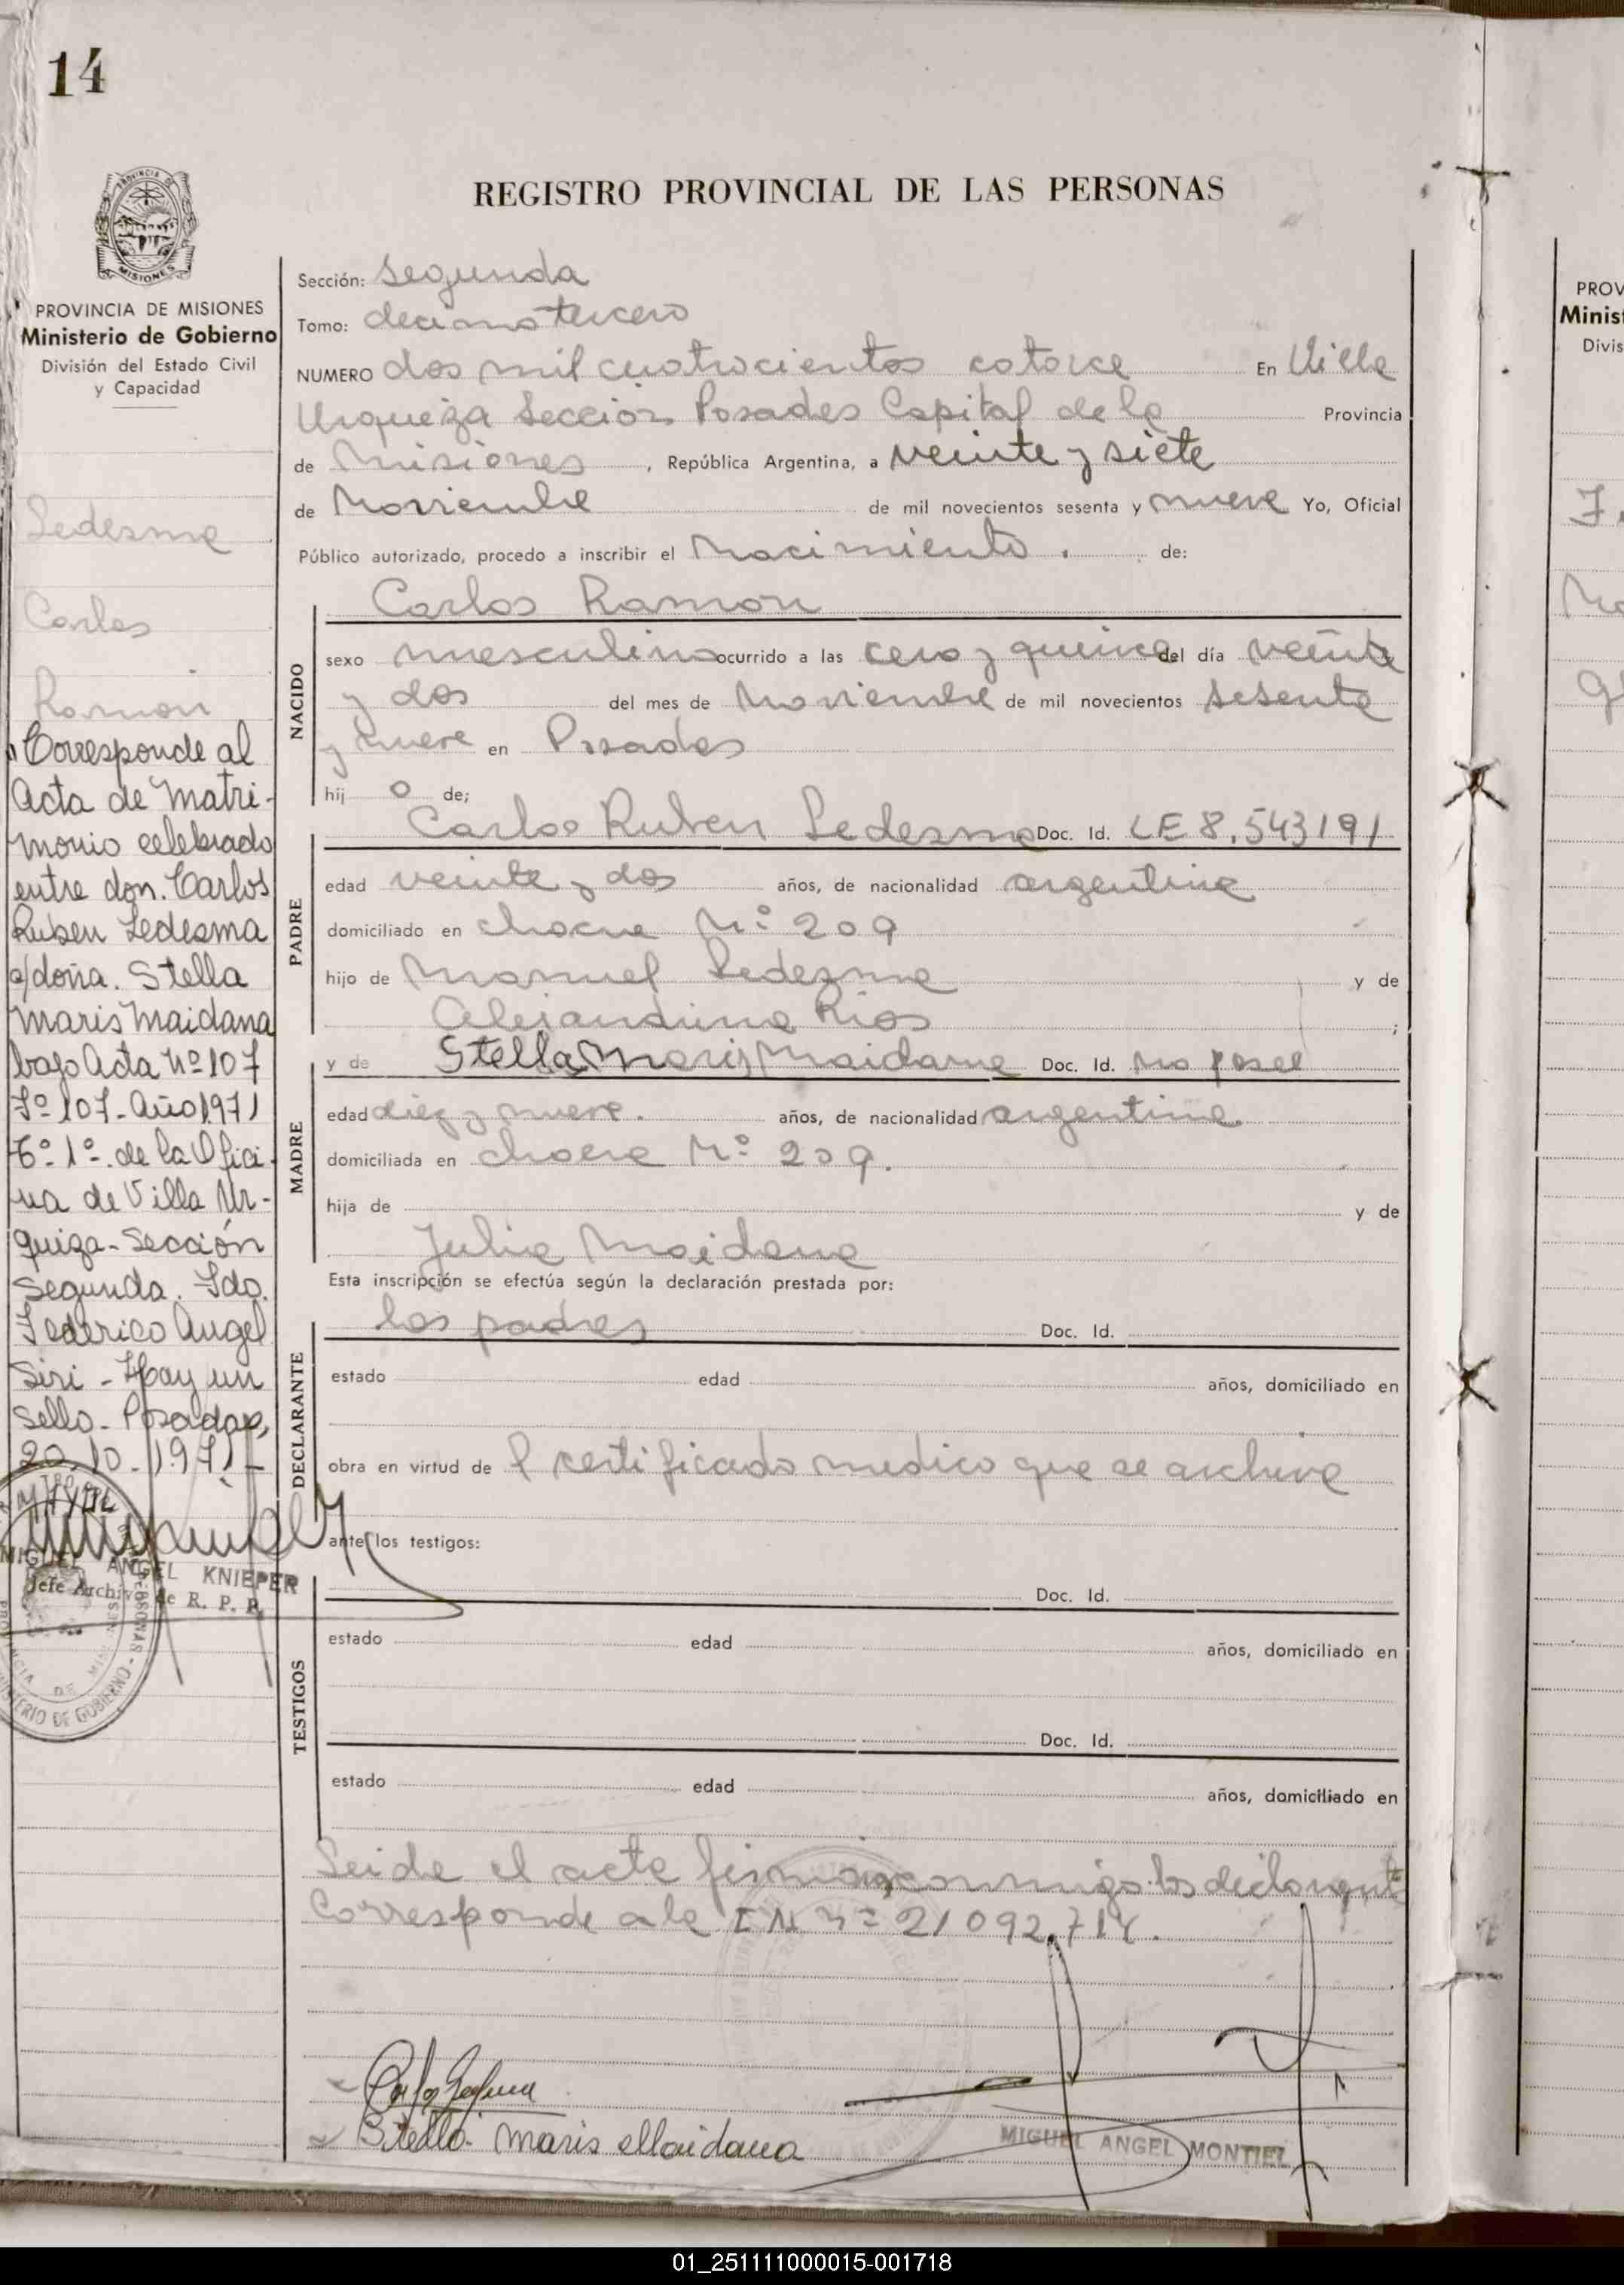 14
PROVINCIA DE
MISIONES
PROVINCIA DE MISIONES
Ministerio de Gobierno
División del Estado Civil
y Capacidad
Ledesma
Carlos
Ramon
Corresponde al
Acta de Matri-
monio celebrado
entre don. Carlos
Ruben Ledesma
c/doña. Stella
Maris Maidana
bajo Acta Nº 107
Fº 107- Año 1971
Tº 1º. de la Ofici-
na de Villa Ur-
quiza- Sección
Segunda. Fdo.
Federico Angel
Siri - Hay un
Sello- Posadas,
20.10.1971-
MIGUEL ANGEL KNIEPER
Jefe Archivo de R. P. P.
MINISTERIO DE GOBIERNO
REGISTRO PROVINCIAL DE LAS PERSONAS
Sección: Segunda
Tomo: decimo tercero
NUMERO dos mil cuatrocientos catorce En Villa
Urquiza Sección Posadas Capital de la Provincia
de Misiones, República Argentina, a veinte y siete
de Noviembre de mil novecientos sesenta y nueve Yo, Oficial
Público autorizado, procedo a inscribir el Nacimiento. de:
Carlos Ramon
NACIDO
sexo masculino ocurrido a las cero y quince del día veinte
y dos del mes de Noviembre de mil novecientos sesenta
y nueve en Posadas
hij o de;
PADRE
Carlos Ruben Ledesma Doc. Id. LE 8.543191
edad veinte y dos años, de nacionalidad argentina
domiciliado en chacra Nº 209
hijo de Manuel Ledezma y de
Alejandrina Rios ;
MADRE
y de Stella Maris Maidana Doc. Id. no posee
edad diez y nueve. años, de nacionalidad argentina
domiciliada en chacra Nº 209.
hija de y de
Julia Maidana
Esta inscripción se efectúa según la declaración prestada por:
DECLARANTE
los padres Doc. Id.
estado edad años, domiciliado en
obra en virtud de l certificado medico que se archiva
ante los testigos:
TESTIGOS
Doc. Id.
estado edad años, domiciliado en
Doc. Id.
estado edad años, domiciliado en
Leida el acta firman conmigo los declarant
Corresponde a la Nº 21092.714.
Stella Maris Maidana
MIGUEL ANGEL MONTIEL
PROV
Minist
Divis
01_251111000015-001718